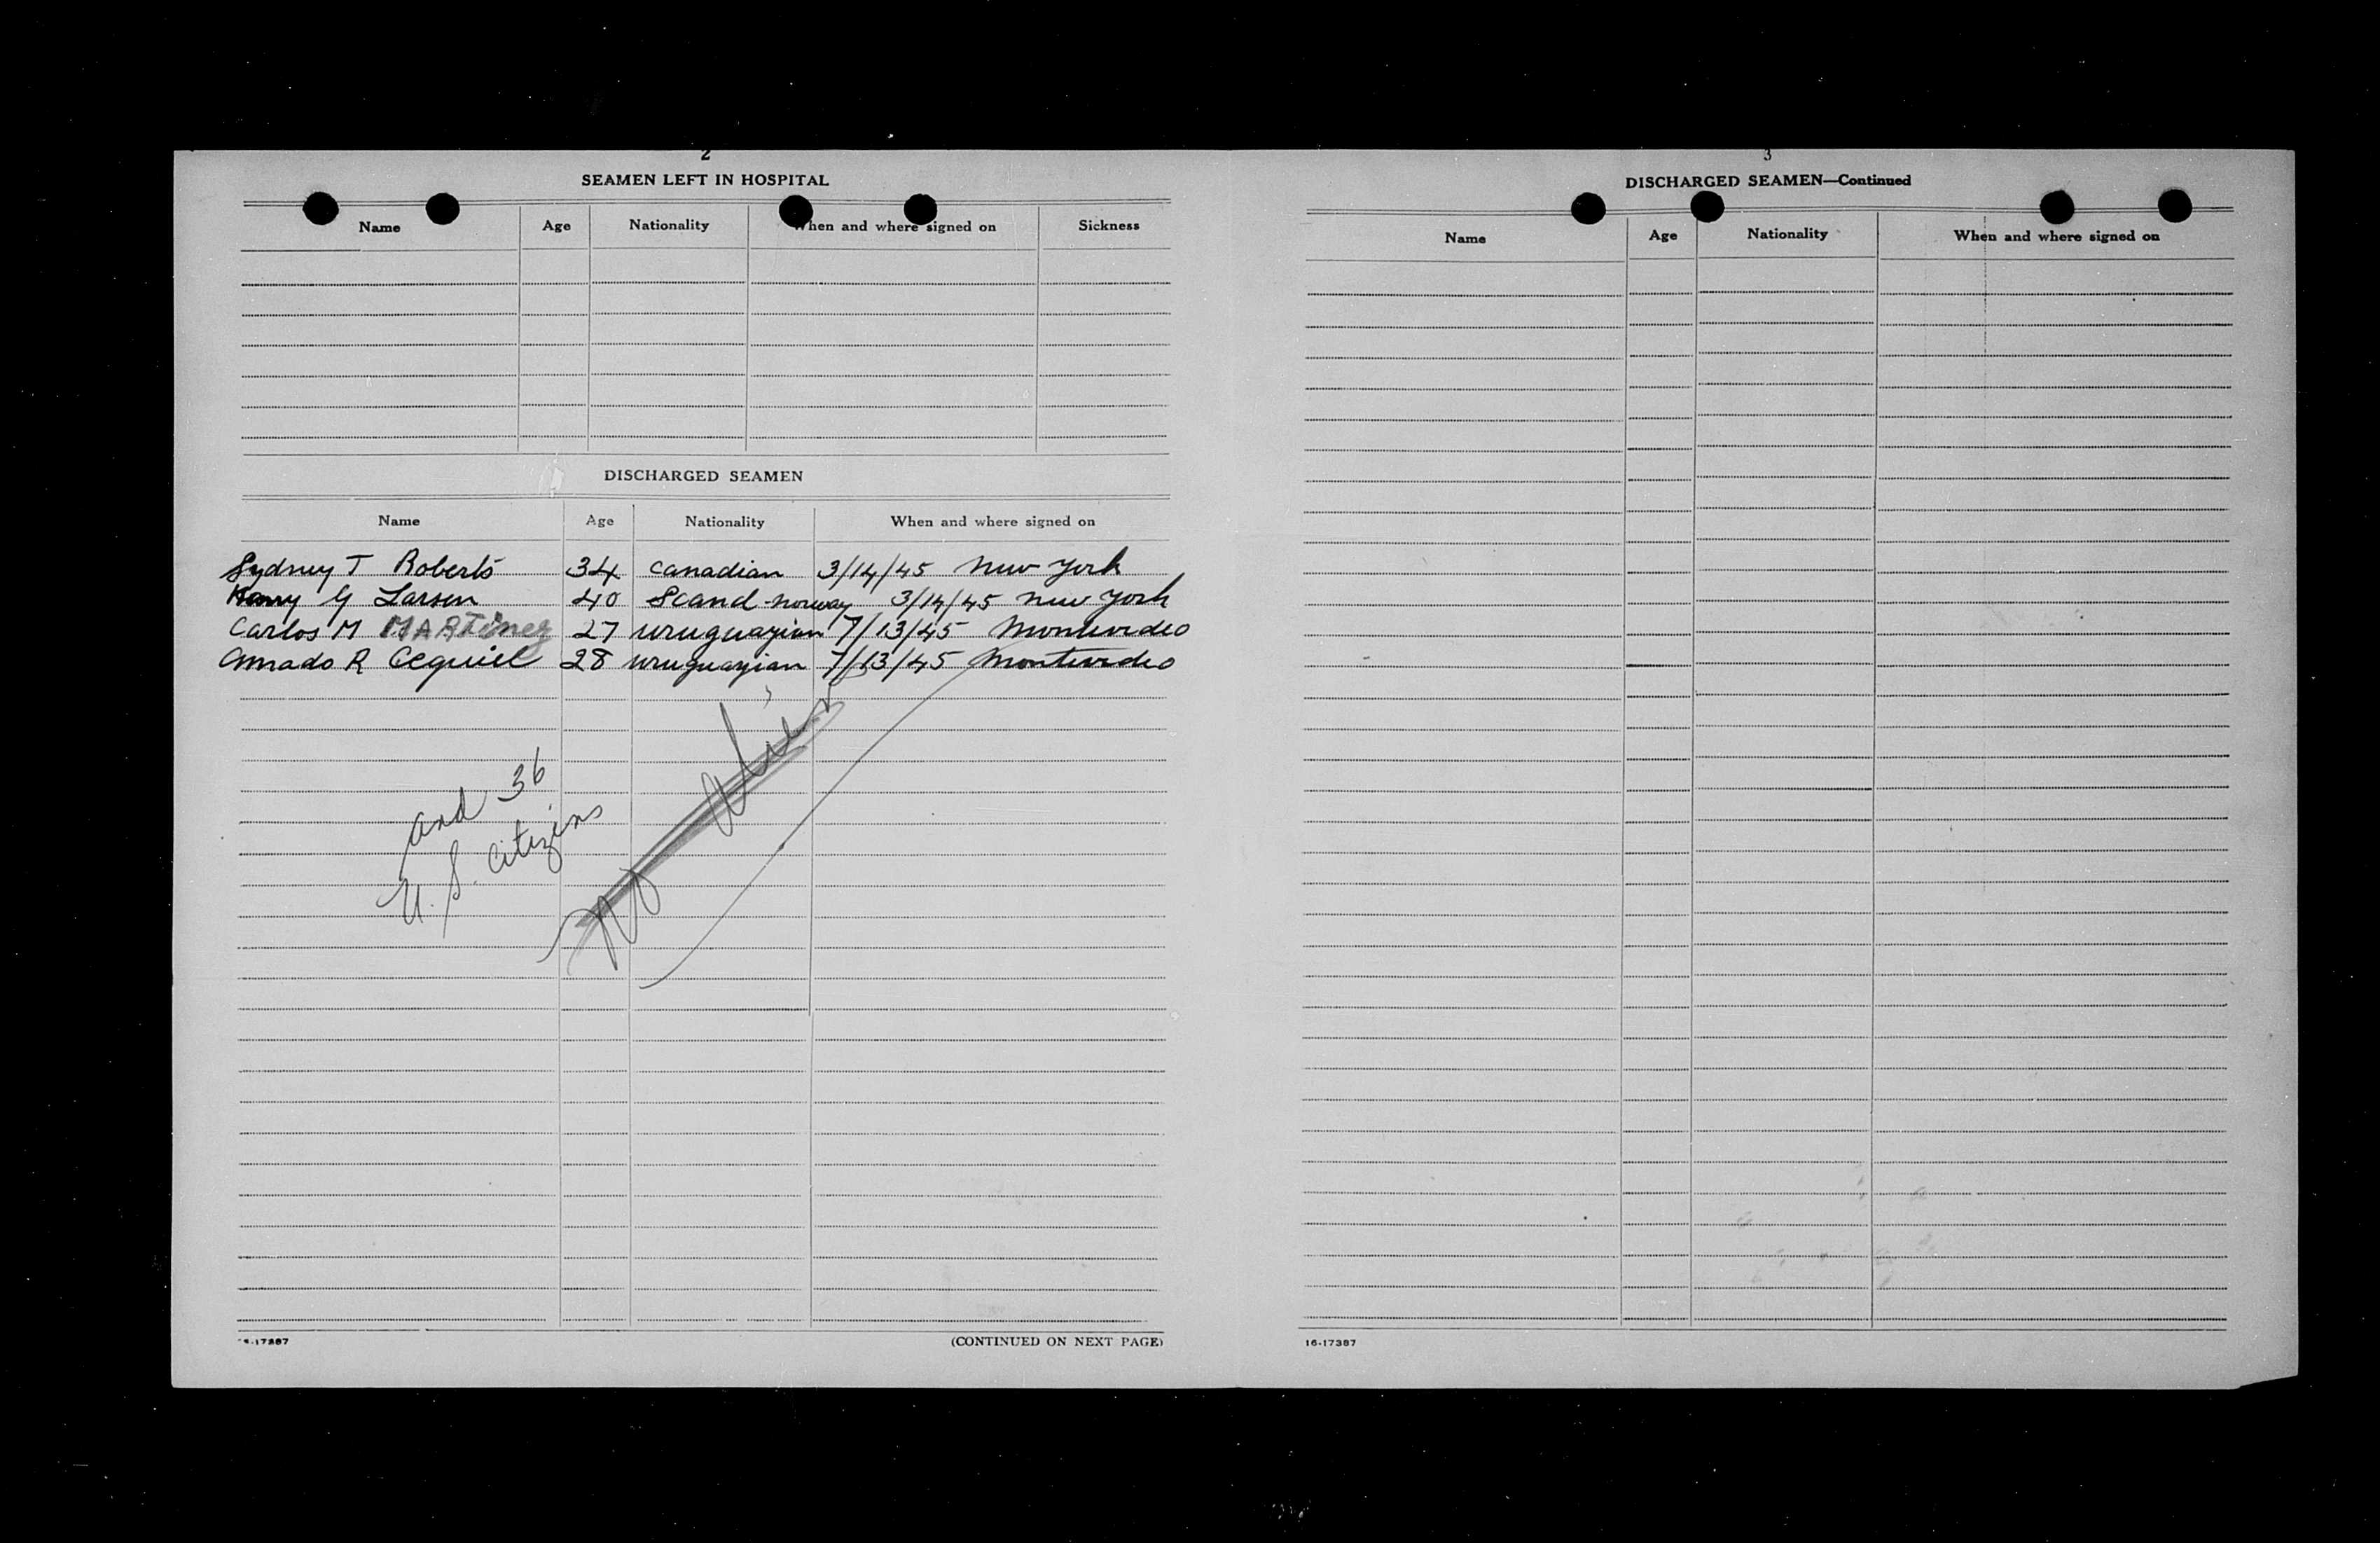 2
SEAMEN LEFT IN HOSPITAL
Name Age Nationality When and where signed on Sickness
DISCHARGED SEAMEN
Name Age Nationality When and where signed on
Sydney T Roberts 34 Canadian 3/14/45 New York
Harry G Larsen 40 Scand-norway 3/14/45 New York
Carlos M MARTinez 27 uruguayian 7/13/45 Montevideo
Amado R 28 uruguayian 7/13/45 Montevideo
and 36
U. S. Citizens
17387
(CONTINUED ON NEXT PAGE)
3
DISCHARGED SEAMEN—Continued
Name Age Nationality When and where signed on
16-17387